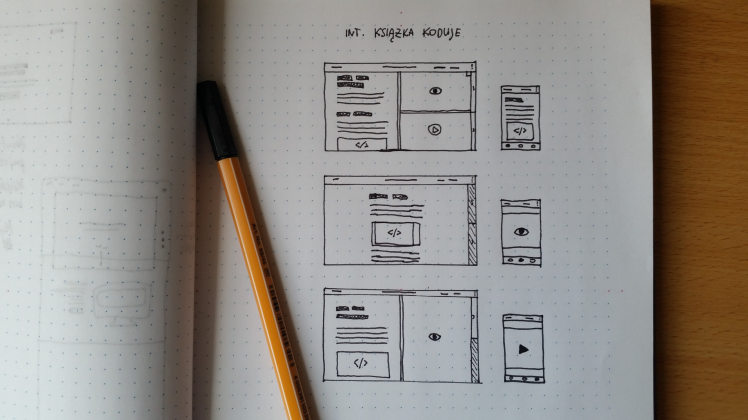 INT. KSIĄŻKA KODUJE
</>
</>
</>
</>